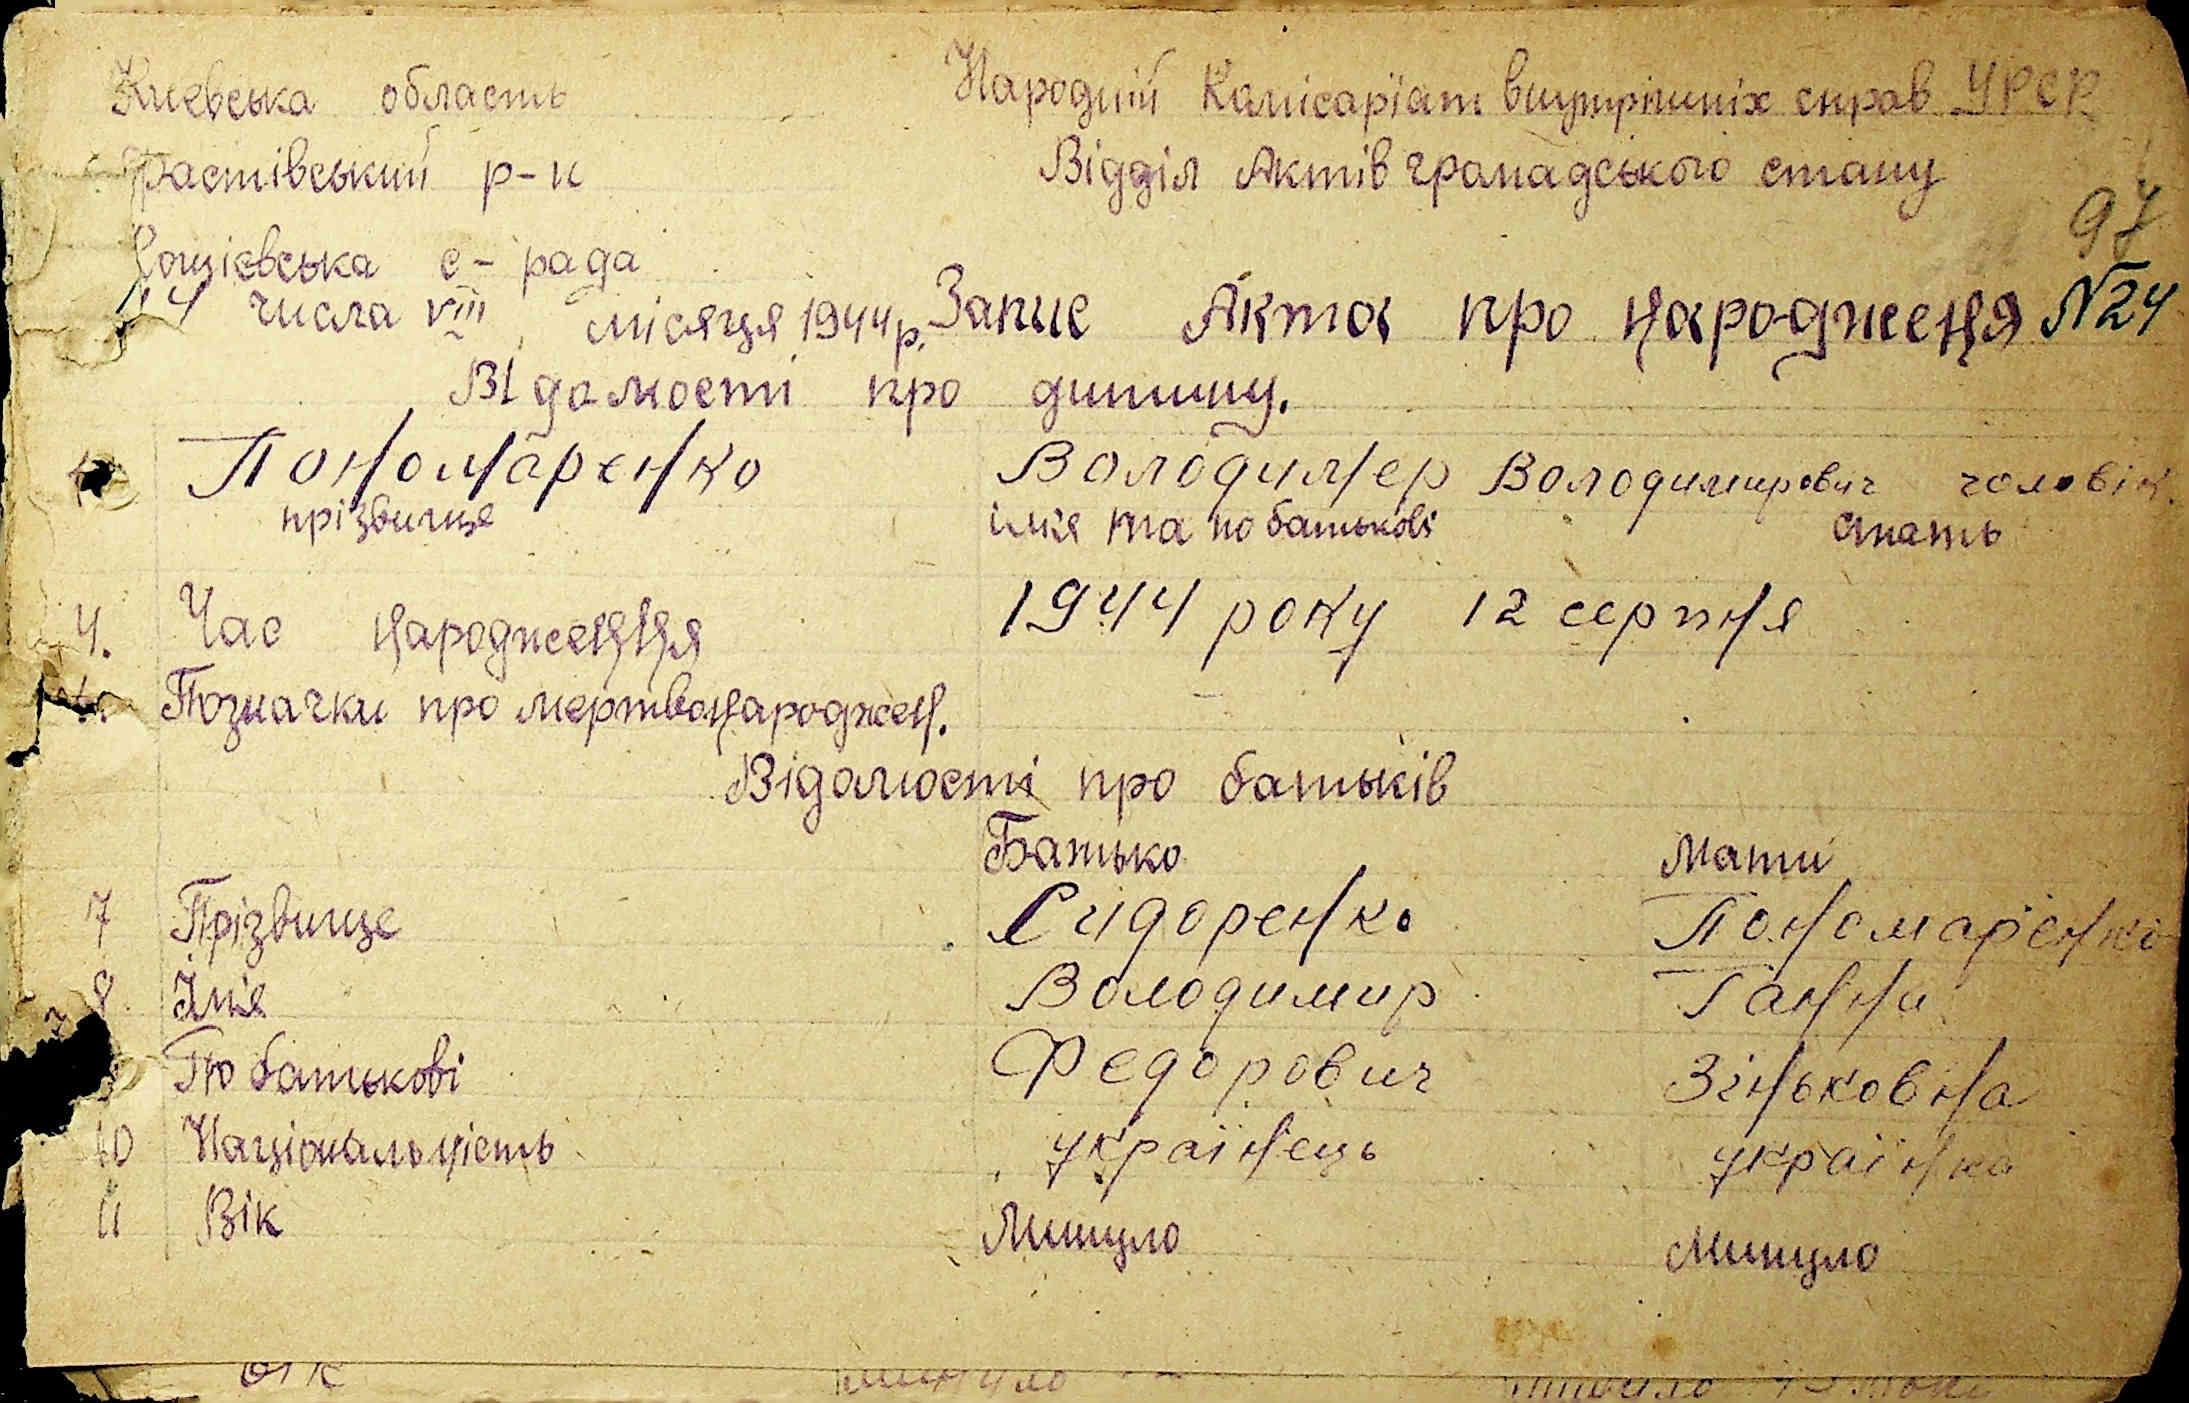 Киевська область
Народній Комісаріат внутрішніх справ УРСР
Фастівський р-н
Відділ Актів громадського стану
97
с-рада
14 числа VIII місяця 1944 р. Запис Акта про народження №24
Відомості про дитину.
Пономаренко Володимер Володимирович чоловік.
прізвище імя та по батькові стать
4. Час народження 1944 року 12 серпня
Позначки про мертвонароджен. –
Відомості про батьків
Батько Мати
7 Прізвище Сидоренко Пономаренко
8 Імя Володимир Ганна
По батькові Федорович Зіньковна
10 Національність українець українка
11 Вік Минуло Минуло
вік минуло минуло